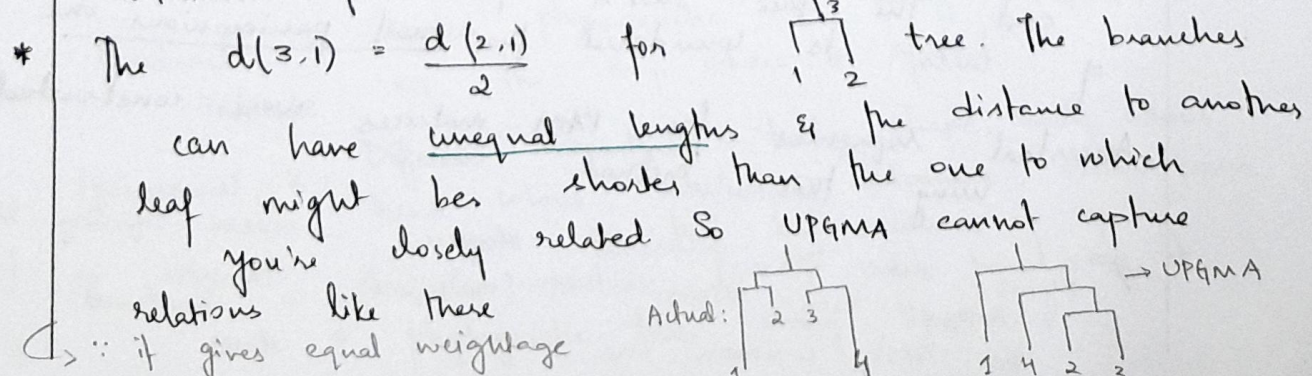 * The d(3,1) = d(2,1)/2 for 3 1 2 tree. The branches
can have unequal lengths & the distance to another
leaf might be shorter than the one to which
you're closely related So UPGMA cannot capture
relations like these Actual: 1 2 3 4 1 4 2 3 → UPGMA
∵ it gives equal weightage